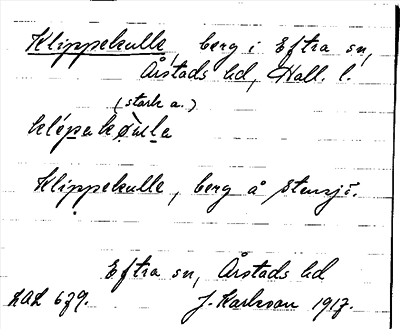 Klippekulle, berg i Eftra sn,
Årstads hd, Hall. l.
(stark a.)
Klippekulle, berg å Stensjö.
Eftra sn, Årstads hd
LAL 679. J. Karlsson 1917.